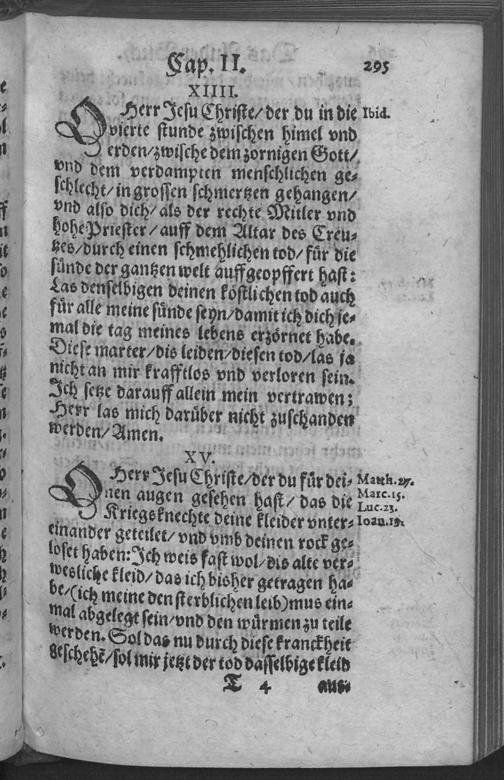 Cap. II. 295
XIIII.
O Herr Jesu Christe/ der du in die Ibid.
vierte stunde zwischen himel vnd
erden/ zwischē dem zornigen Gott/
vnd dem verdampten menschlichen ge-
schlecht/ in grossen schmertzen gehangen/
vnd also dich/ als der rechte Mitler vnd
hohe Priester/ auff dem Altar des Creu-
tzes/ durch einen schmehlichen tod/ für die
sünde der gantzen welt auffgeopffert hast:
Las denselbigen deinen köstlichen tod auch
für alle meine sünde seyn/ damit ich dich je-
mal die tag meines lebens erzörnet habe.
Diese marter/ dis leiden/ diesen tod/ las ja
nicht an mir krafftlos vnd verloren sein.
Ich setze darauff allein mein vertrawen;
Herr las mich darüber nicht zuschanden
werden/ Amen.
XV.
O Herr Jesu Christe/ der du für dei- Matth. 27.
nen augen gesehen hast/ das die Marc. 15.
Kriegsknechte deine kleider vnter- Luc. 23.
einander geteilet/ vnd vmb deinen rock ge- Ioan. 19.
loset haben: Ich weis fast wol/ dis alte ver-
wesliche kleid/ das ich bisher getragen ha-
be/ (ich meine den sterblichen leib) mus ein-
mal abgelegt sein/ vnd den würmen zu teile
werden. Sol das nu durch diese kranckheit
geschehē/ sol mir jetzt der tod dasselbige kleid
T 4 aus-